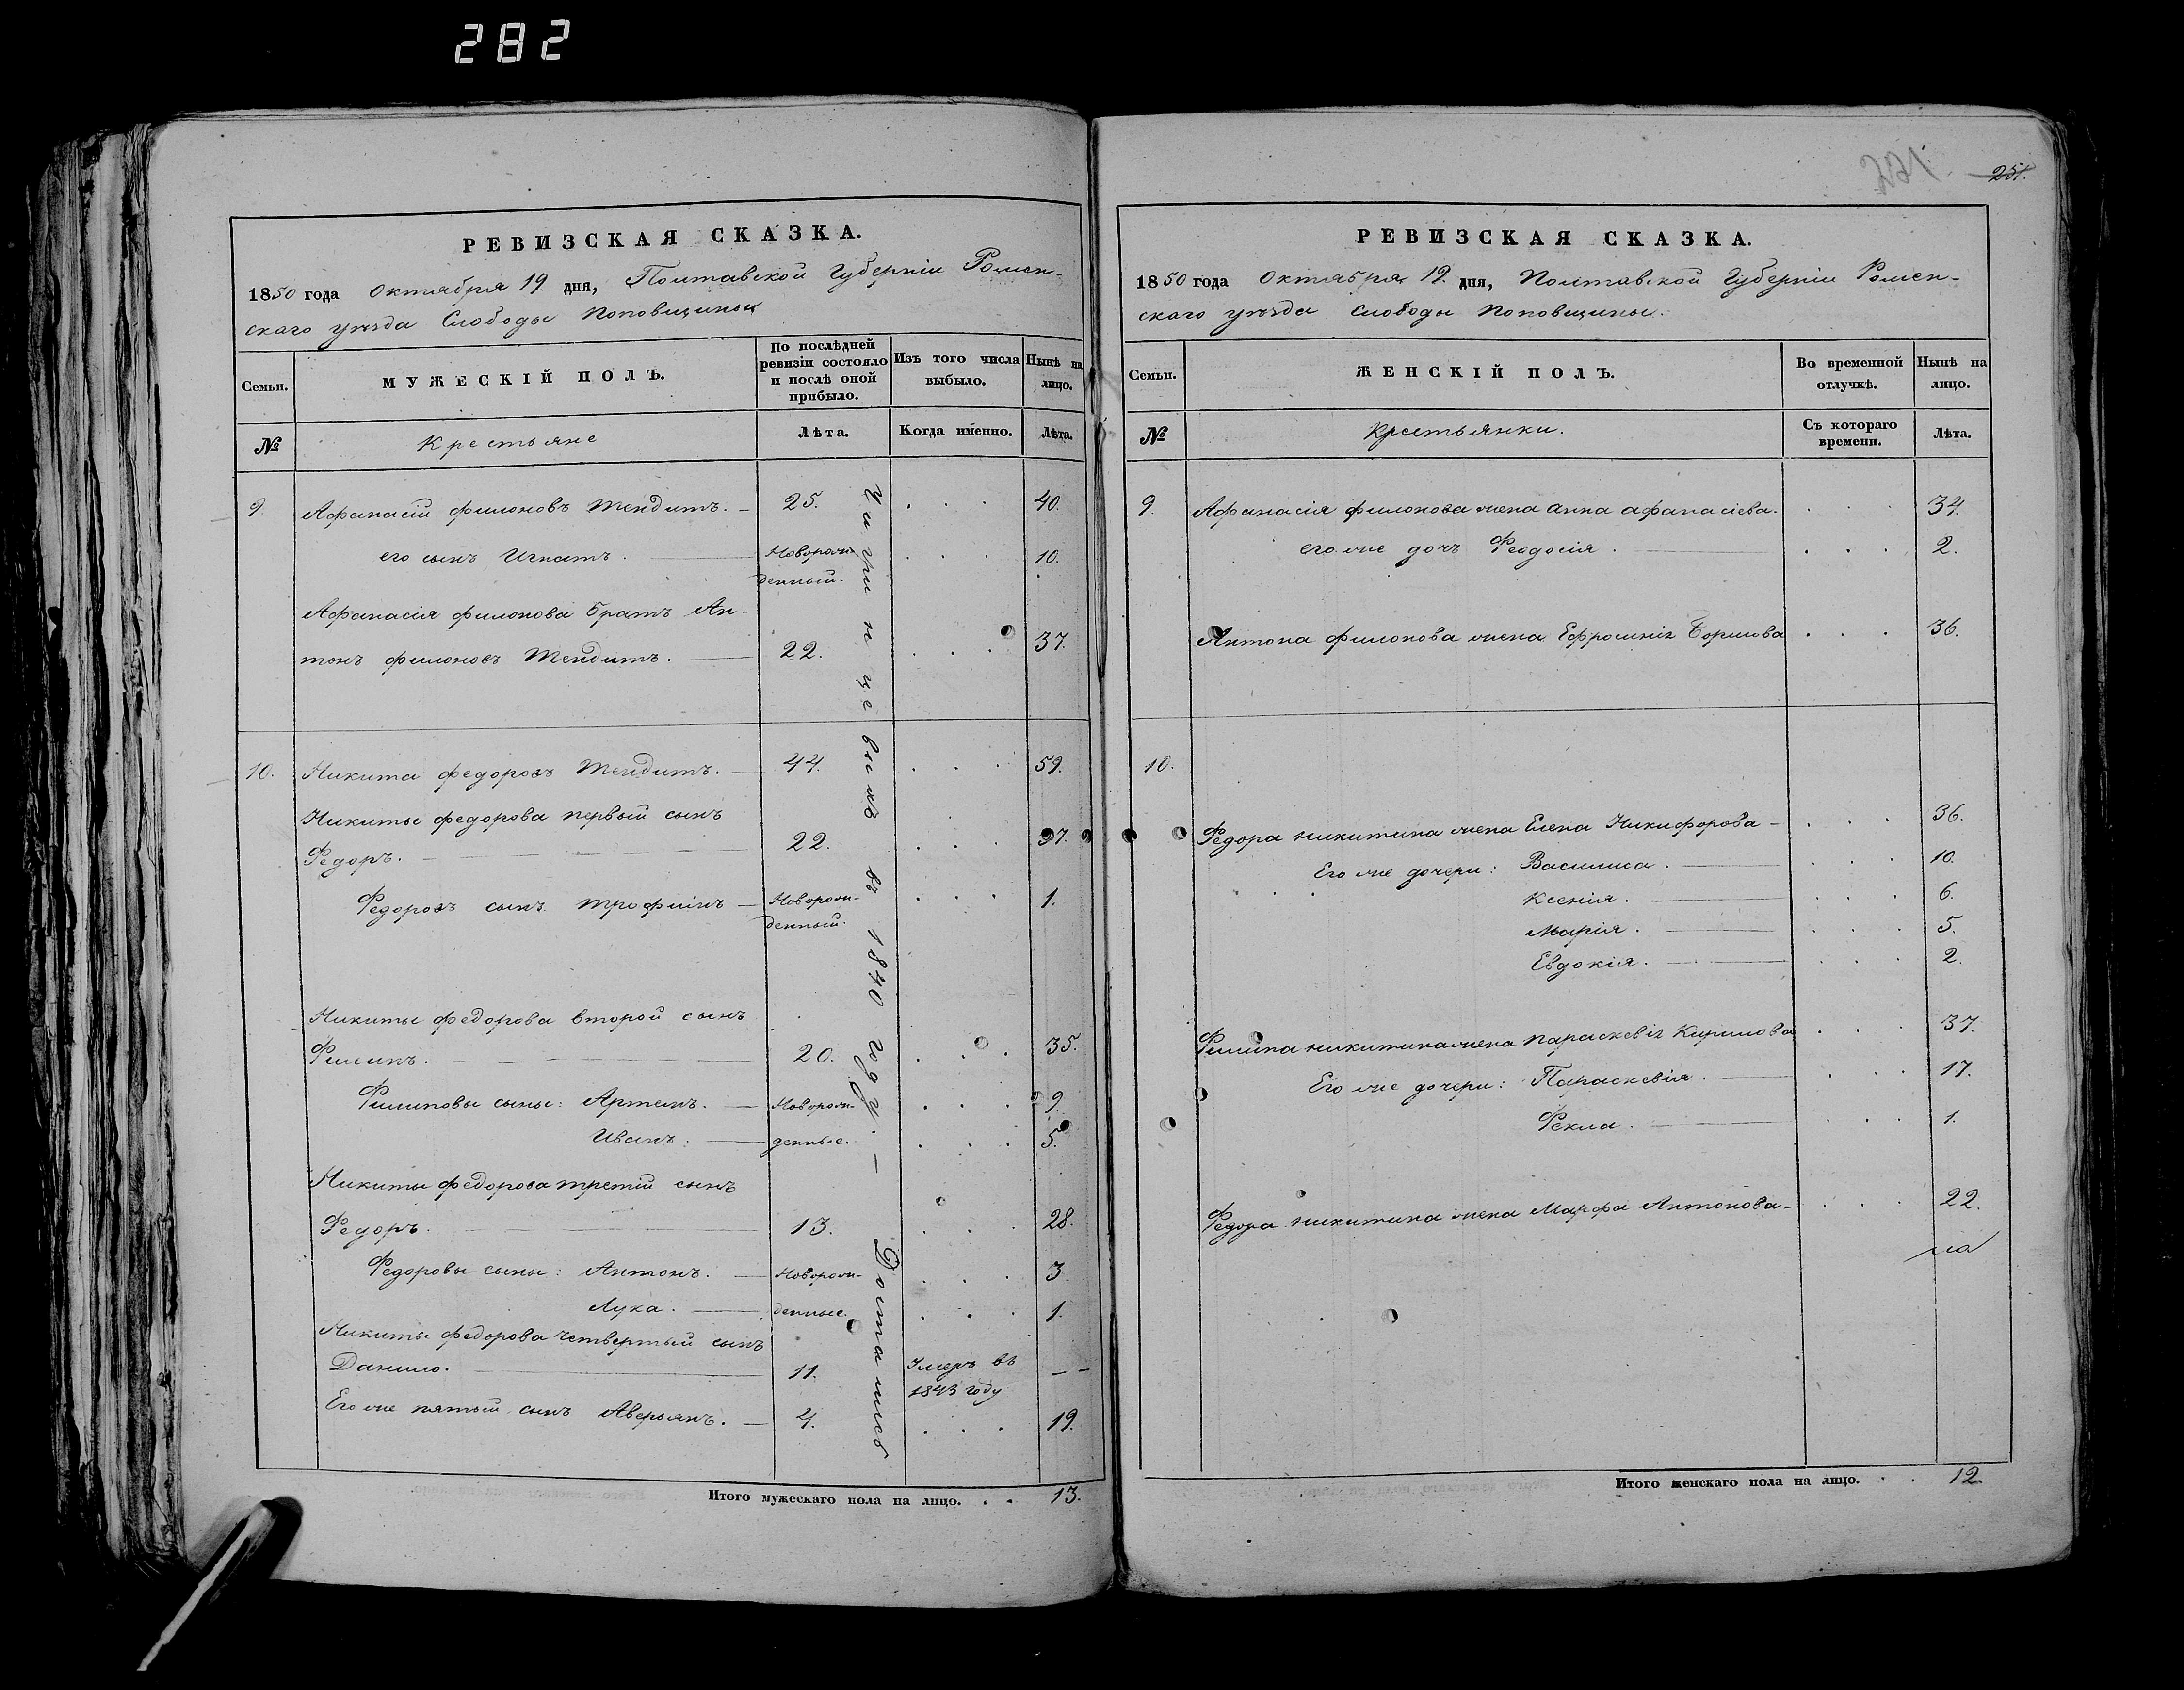 282
РЕВИЗСКАЯ СКАЗКА.
1850 года Октября 19. дня, Полтавской Губерніи Ромен-
скаго уѣзда Слободы Поповщины
Семьи.
МУЖЕСКІЙ ПОЛЪ.
По послѣдней ревизіи состояло и послѣ оной прибыло.
Изъ того числа выбыло.
Нынѣ на лицо.
№
Крестьяне
Лѣта.
Когда именно.
Лѣта.
9. Афанасій филоновъ Тендитъ. 25. . . . 40.
его сынъ Игнатъ. Поворож- . . . 10.
денный.
Афанасія филонова братъ Ан-
тонъ филоновъ Тендитъ. 22. . . . 37.
10. Никита федоровъ Тендитъ. 44. . . . 59.
Никиты федорова первый сынъ
Федоръ. 22. . . . 37.
Федоровъ сынъ Трофимъ Новорож- . . . 1.
денный.
Никиты федорова второй сынъ
Филипъ. 20. . . . 35.
Филиповы сыны: Артемъ. Новорож- . . . 9.
Иванъ. денные. . . . 5.
Никиты федорова третій сынъ
Федоръ. 13. . . . 28.
Федоровы сыны: Антонъ. Новорож- . . . 3
Лука. денные. . . . 1.
Никиты федорова четвертый сынъ
Данило. 11. Умеръ въ 1843 году — —
Его же пятый сынъ Аверьянъ. 4. . . . 19.
въ 1840 году. — Достались
Итого мужескаго пола на лицо. . . 13.
251.
РЕВИЗСКАЯ СКАЗКА.
1850 года Октября 19. дня, Полтавской Губерніи Ромен-
скаго уѣзда Слободы Поповщины.
Семьи.
ЖЕНСКІЙ ПОЛЪ.
Во временной отлучкѣ.
Нынѣ на лицо.
№
Крестьянки.
Съ котораго времени.
Лѣта.
9. Афанасія филонова жена анна афанасіева . . . 34.
его же дочъ Феодосія. . . . 2.
Антона филонова жена Ефросинія . . . 36.
10.
Федора никитина жена Елена Никифорова . . . 36.
Его же дочери: Василиса. . . . 10.
Ксенія. . . . 6.
Марія. . . . 5.
Евдокія. . . . 2.
Филипа никитина жена параскевія Кирилова . . . 37.
Его же дочери: Параскевія. . . . 17.
Фекла. . . . 1.
Федора никитина жена Марфа Антонова . . . 22.
Итого женскаго пола на лицо. . . 12.